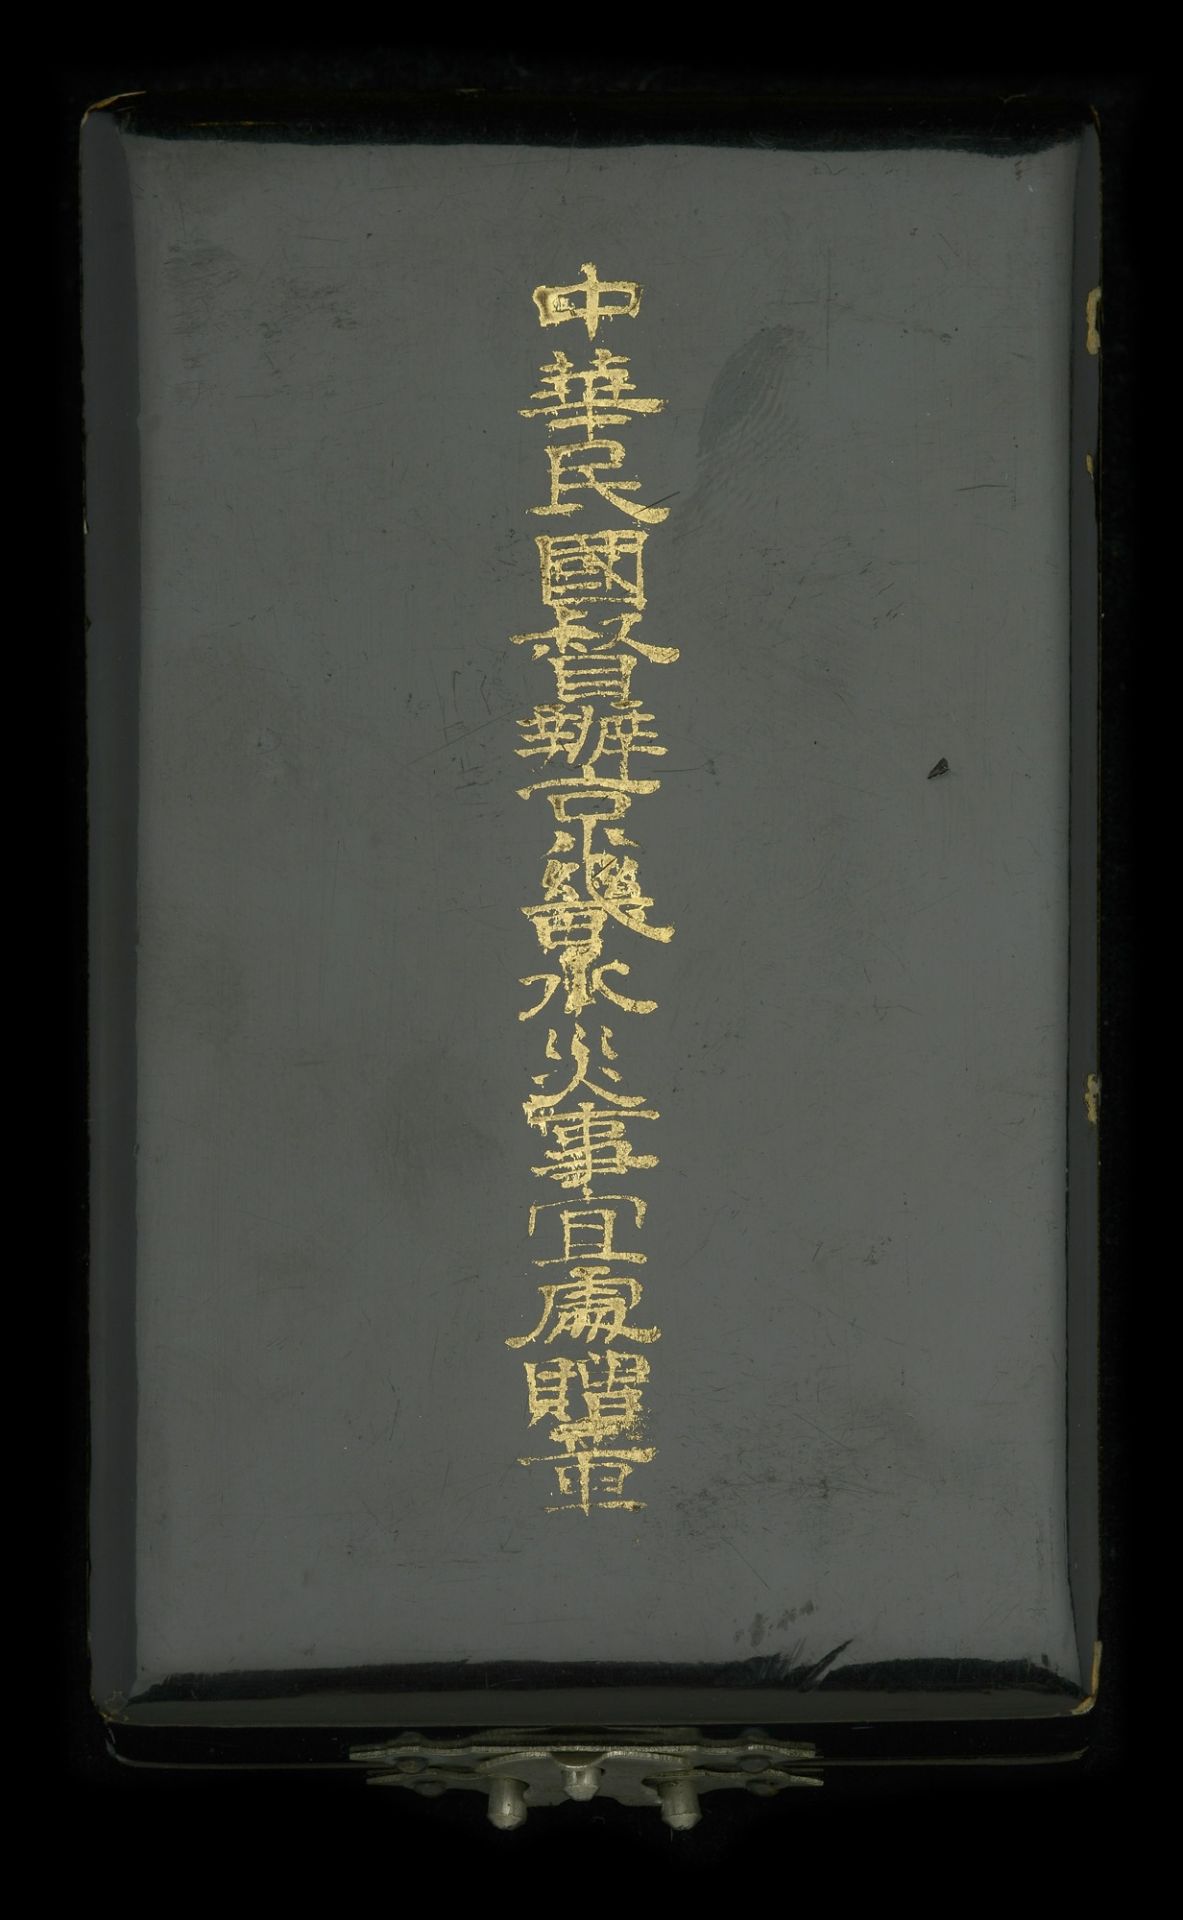 中華民國督辦京畿水災事宜處贈